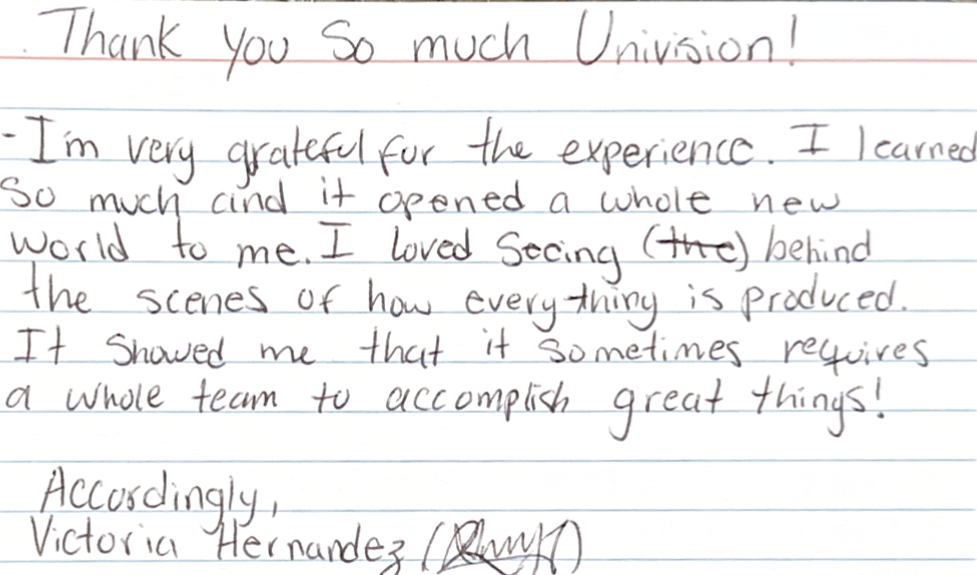 Thank you so much Univision!
- I'm very grateful for the experience. I learned
so much and it opened a whole new
world to me. I loved seeing (the) behind
the scenes of how everything is produced.
It showed me that it sometimes requires
a whole team to accomplish great things!
Accordingly,
Victoria Hernandez